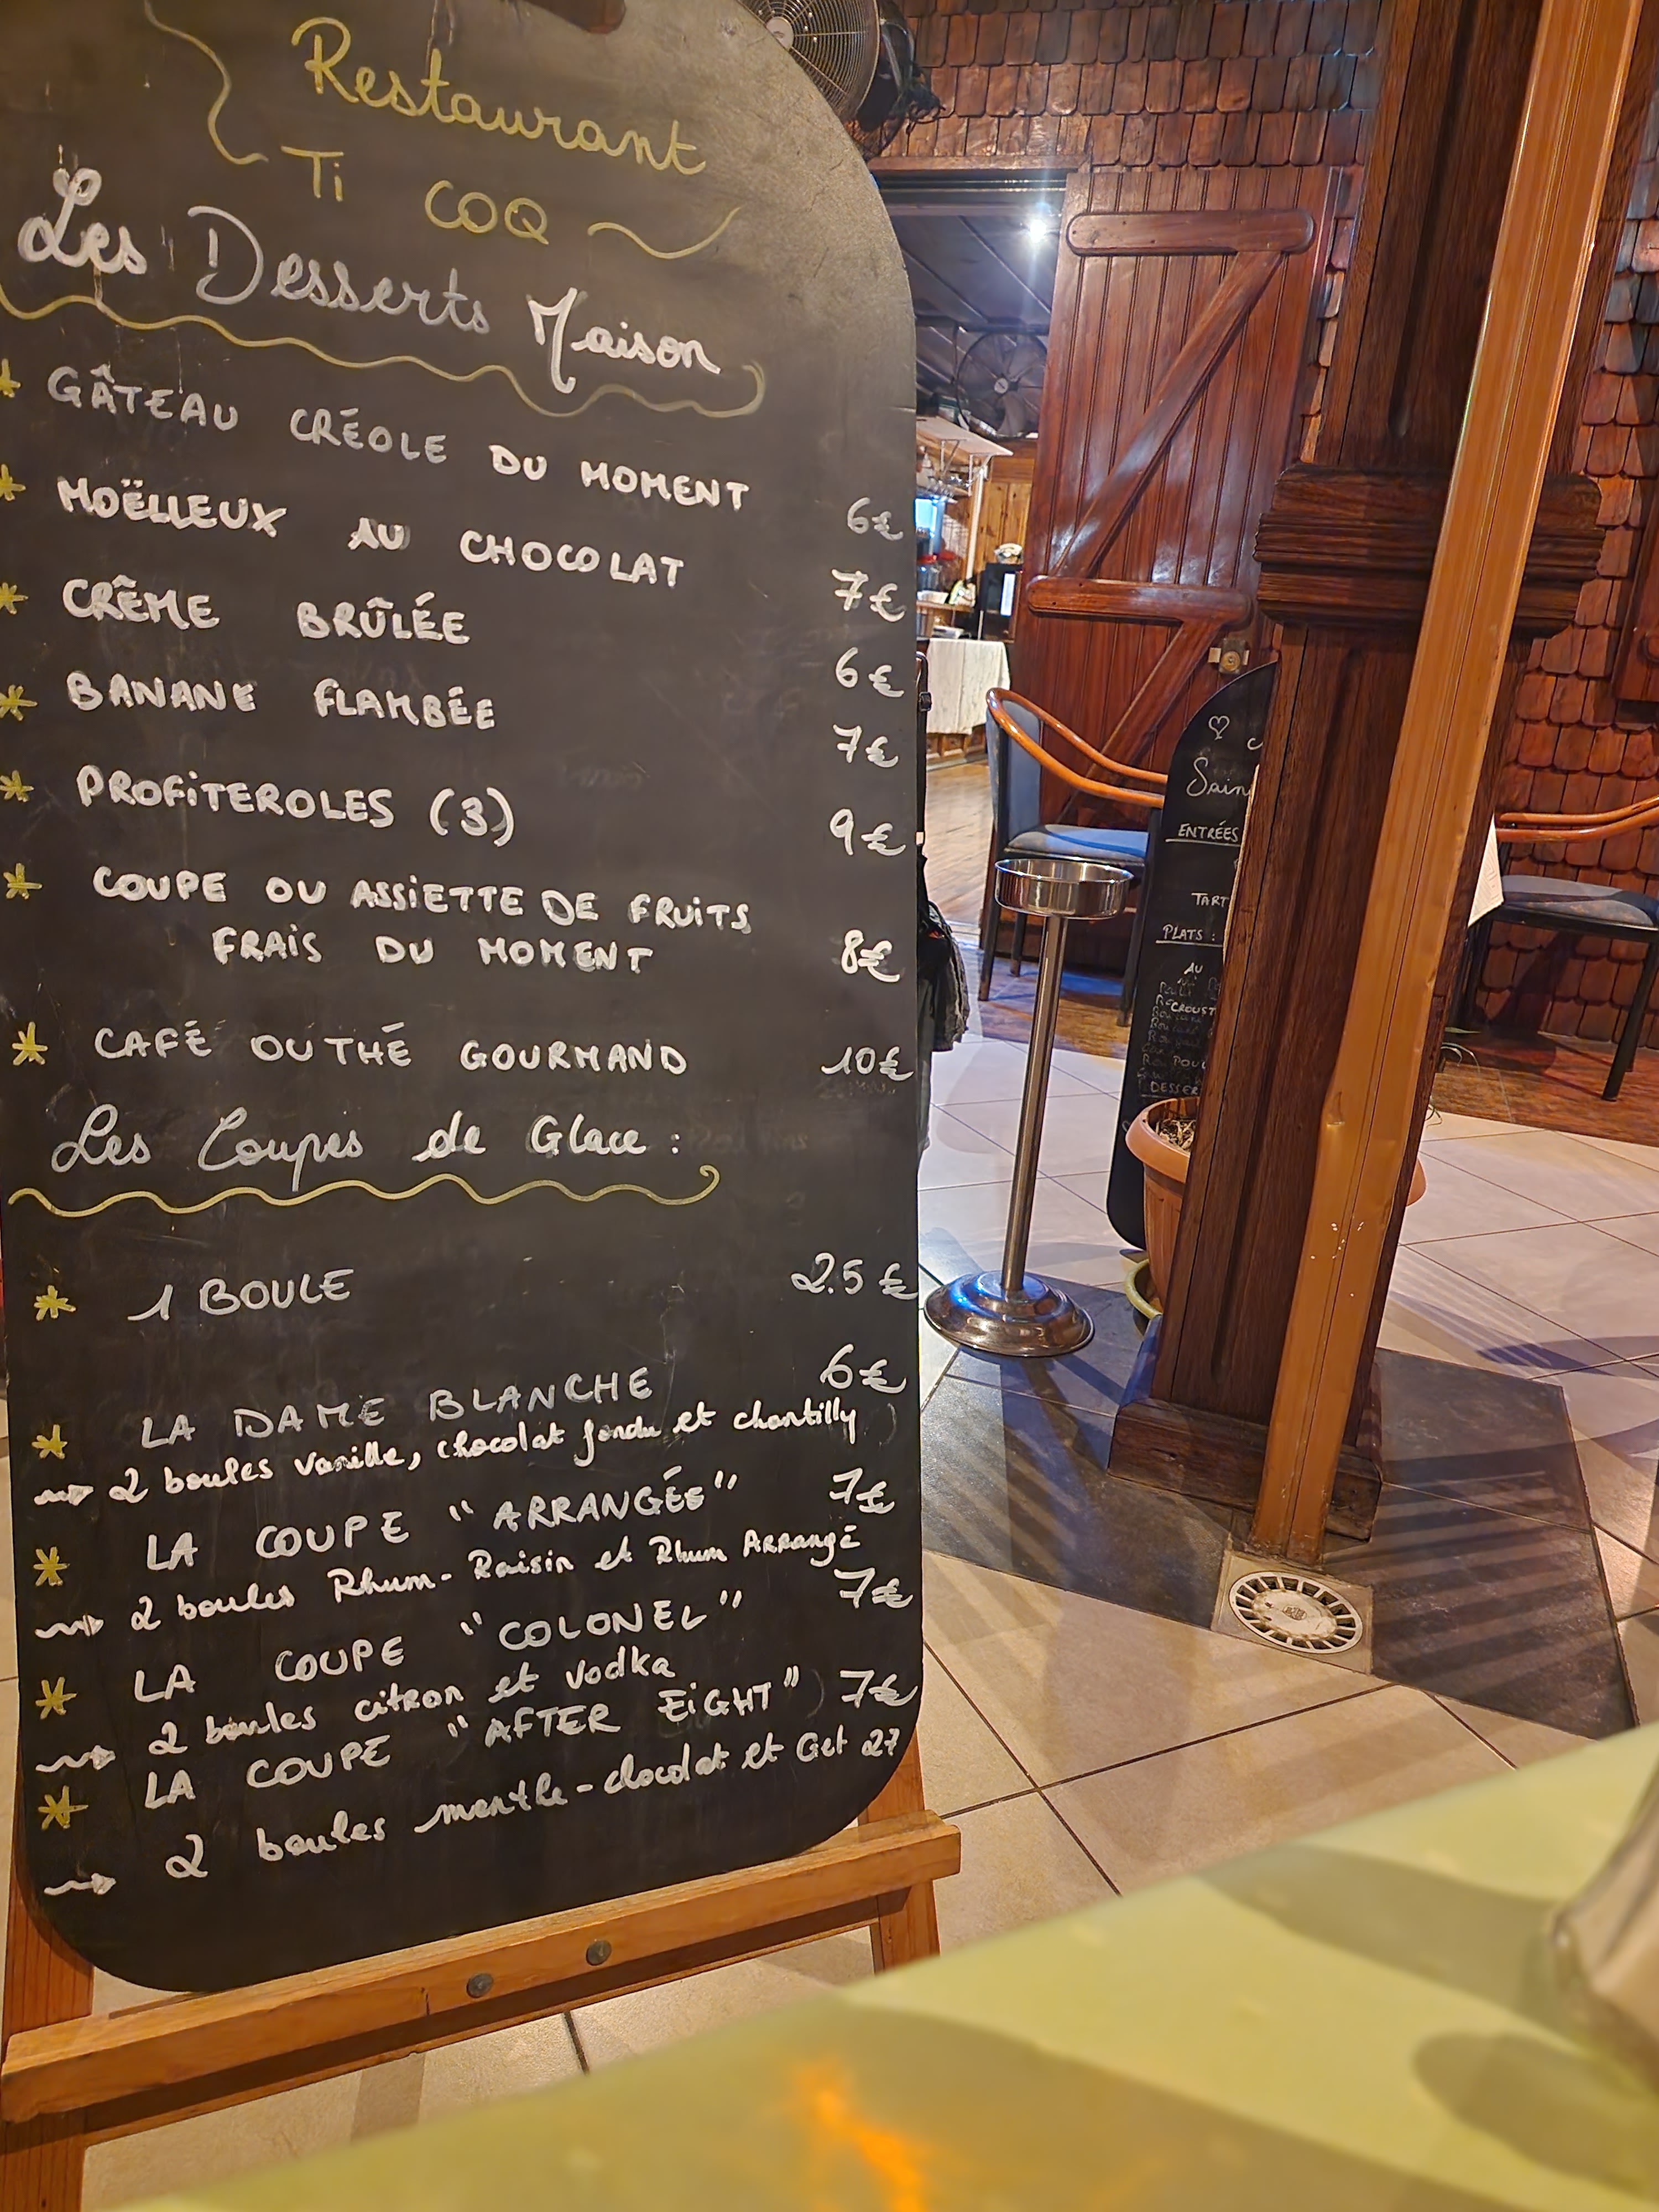 Restaurant
Ti COQ
Les Desserts Maison
* GÂTEAU CRÉOLE DU MOMENT 6€
* MOËLLEUX AU CHOCOLAT 7€
* CRÊME BRÛLÉE 6€
* BANANE FLAMBÉE 7€
* PROFiTEROLES (3) 9€
* COUPE OU ASSiETTE DE FRUiTS
FRAiS DU MOMENT 8€
* CAFÉ OU THÉ GOURMAND 10€
Les Coupes de Glace :
* 1 BOULE 2.5 €
* LA DAME BLANCHE 6€
→ 2 boules vanille, chocolat fondu et chantilly
* LA COUPE "ARRANGÉE" 7€
→ 2 boules Rhum-Raisin et Rhum Arrangé
* LA COUPE "COLONEL" 7€
→ 2 boules citron et vodka
* LA COUPE "AFTER EiGHT" 7€
→ 2 boules menthe-chocolat et Get 27
ENTRÉES
TART
PLATS :
AU
CROUST
POUL
DESSER